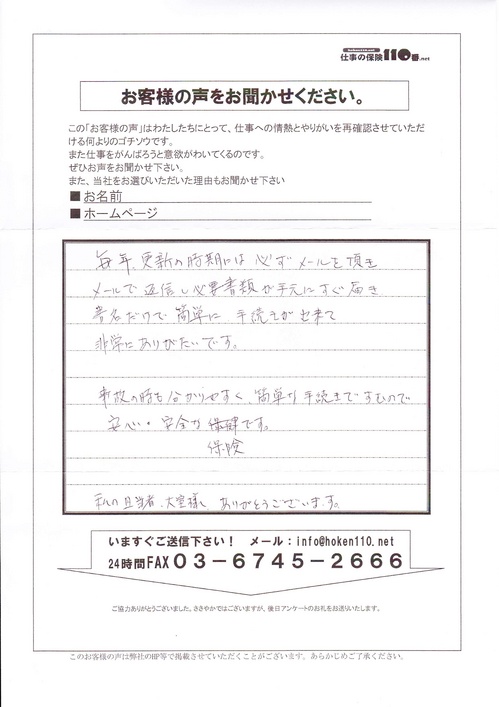 hoken110.net
仕事の保険110番.net
お客様の声をお聞かせください。
この「お客様の声」はわたしたちにとって、仕事への情熱とやりがいを再確認させていただ
ける何よりのゴチソウです。
また仕事をがんばろうと意欲がわいてくるのです。
ぜひお声をお聞かせ下さい。
また、当社をお選びいただいた理由もお聞かせ下さい
■お名前
■ホームページ
毎年、更新の時期には必ずメールを頂き
メールで返信し必要書類が手元にすぐ届き
署名だけで簡単に手続きが出来て
非常にありがたいです。
事故の時も分かりやすく、簡単な手続きですむので
安心・安全な保健です。
保険
私の担当者、大室様、ありがとうございます。
いますぐご送信下さい！ メール：info@hoken110.net
24時間FAX０３－６７４５－２６６６
ご協力ありがとうございました。ささやかではございますが、後日アンケートのお礼をお送りいたします。
このお客様の声は弊社のHP等で掲載させていただくことがございます。あらかじめご了承ください。